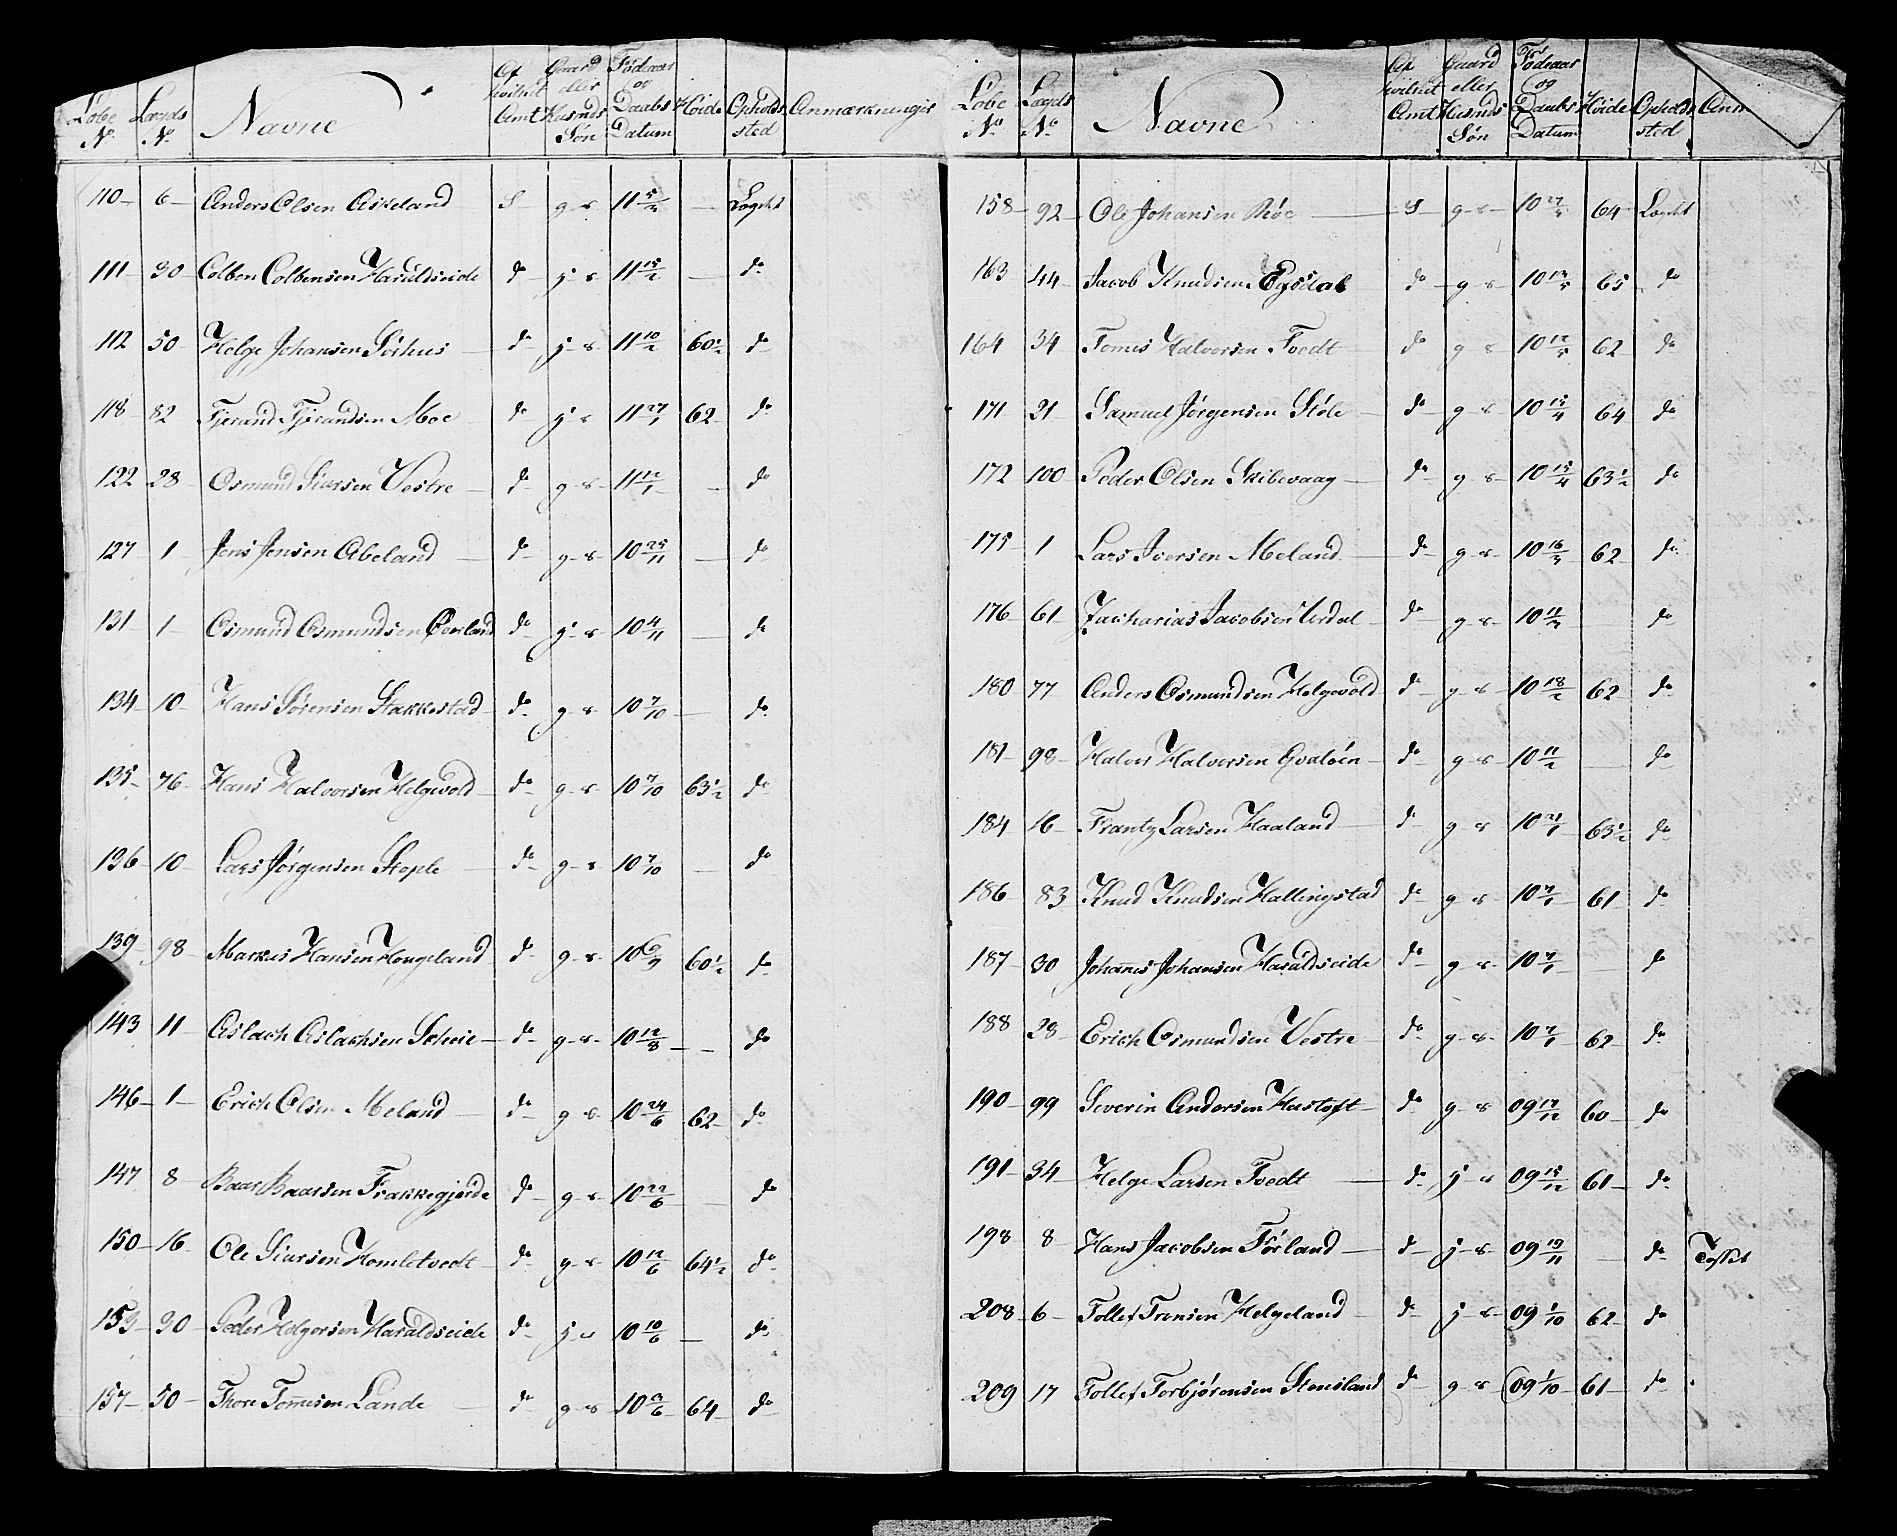 Løbe No. Lægds No. Navne Af hvilket Amt Gaard eller Husmds Søn Fødsaar og Daabs Datum Høide Opholdssted Anmærkninger
110 6 Anders Olsen Askeland S g s 11 5/3 — Lægdet
111 30 Colben Colbensen Haraldseide do j s 11 15/2 — do
112 50 Helge Johansen Sørhus do j s 11 10/2 60½ do
118 82 Tjerand Tjerandsen Moe do j s 11 27/1 62 do
122 28 Osmund Siursen Vestre do g s 11 12/1 — do
127 1 Jens Jensen Abeland do g s 10 25/11 — do
131 1 Osmund Osmundsen do g s 10 4/11 — do
134 10 Hans Sørensen Stakkestad do g s 10 7/10 — do
135 76 Hans Halvorsen Helgevold do g s 10 7/10 63½ do
136 10 Lars Jørgensen Stople do g s 10 7/10 — do
139 98 Markus Hansen Hougeland do g s 10 9/9 60½ do
143 11 Aslach Aslachsen Scheie do g s 10 12/8 — do
146 1 Erich Olsen Meland do g s 10 24/6 62 do
147 8 Baar Baarsen Frakkegjerde do g s 10 22/6 — do
150 16 Ole Siursen Homletvedt do g s 10 12/6 64½ do
153 30 Peder Helgersen Haraldseide do j s 10 10/6 — do
157 50 Thore Tommesen Lande do g s 10 /6 64 do
Løbe No. Lægds No. Navne Af hvilket Amt Gaard eller Husmds Søn Fødsaar og Daabs Datum Høide Opholdssted Anm
158 92 Ole Johansen Røe S g s 10 27/5 64 Lægdet
163 44 Jacob Knudsen Egsdal do g s 10 13/5 65 do
164 34 Tomes Halvorsen Tvedt do g s 10 12/5 62 do
171 21 Samuel Jørgensen Støle do g s 10 15/4 64 do
172 100 Peder Olsen Skibevaag do g s 10 15/4 63½ do
175 1 Lars Iversen Meland do g s 10 16/3 62 do
176 61 Zacharias Jacobsen do g s 10 11/3 do
180 77 Anders Osmundsen Helgevold do g s 10 18/2 62 do
181 98 Halvor Halvorsen Gvaløen do g s 10 11/2 — do
184 16 Frantz Larsen Haaland do g s 10 21/1 63½ do
186 83 Knud Knudsen Hallingstad do g s 10 7/1 61 do
187 30 Johannes Johansen Haraldseide do g s 10 7/1 — do
188 28 Erich Osmundsen Vestre do g s 10 7/1 62 do
190 99 Severin Andersen Hustoft do g s 09 17/12 60 do
191 34 Helge Larsen Tvedt do j s 09 15/12 61 do
198 8 Hans Jacobsen Førland do j s 09 19/11 — do Tosset
208 6 Tollef Tronsen Helgeland do j s 09 1/10 62 do
209 17 Tollef Torbjørnsen Stensland do g s 09 1/10 61 do